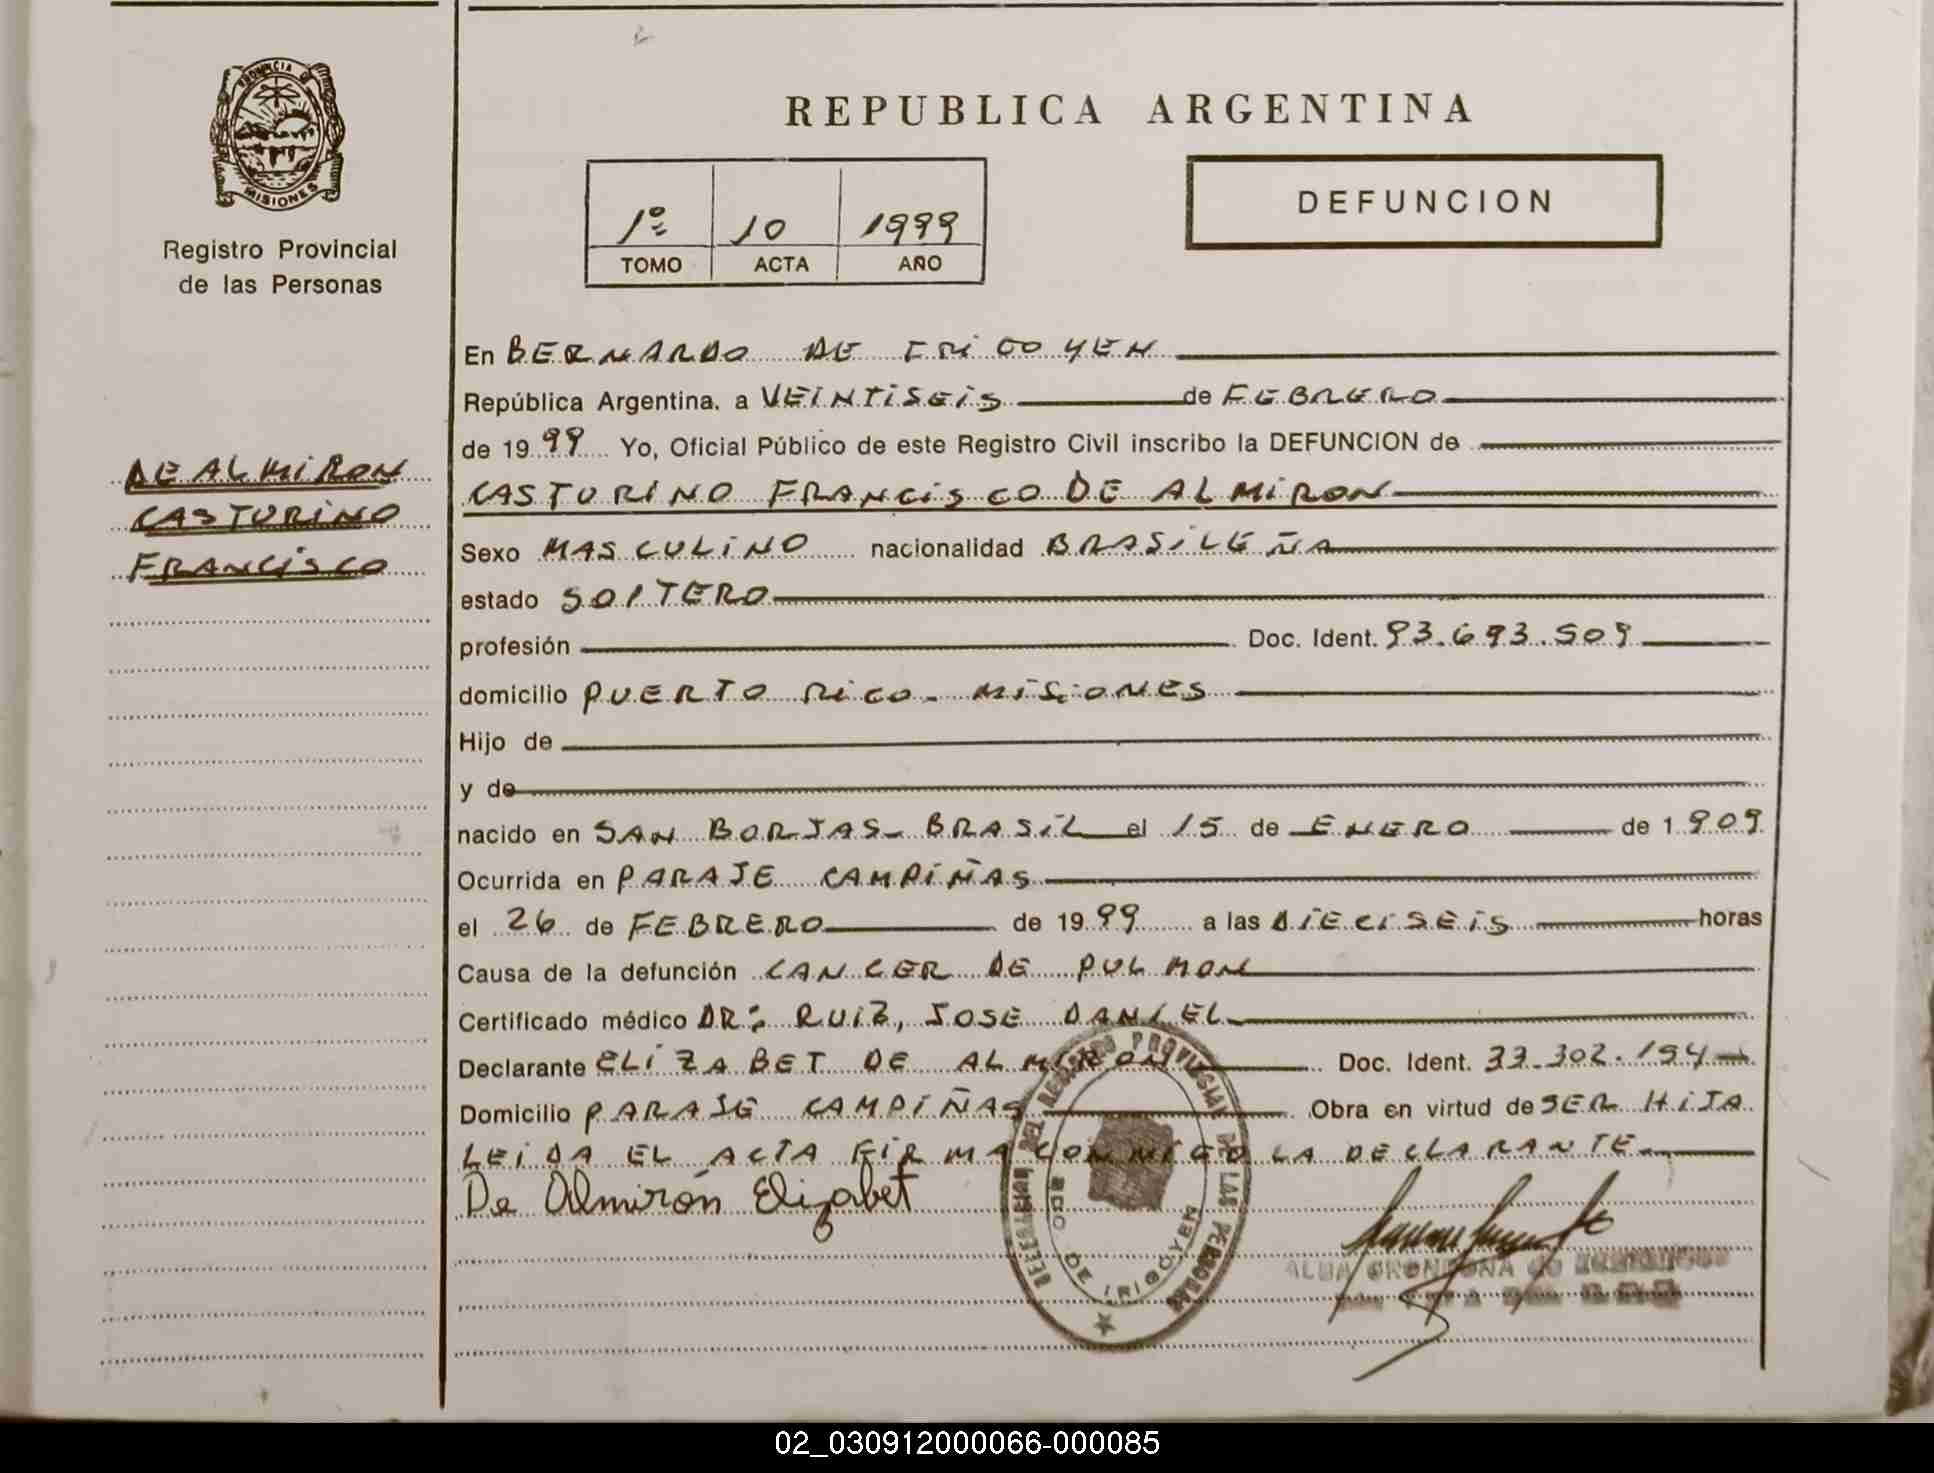 PROVINCIA DE
MISIONES
Registro Provincial
de las Personas
DE ALMIRON
CASTURINO
FRANCISCO
REPUBLICA ARGENTINA
1º 10 1999
TOMO ACTA AÑO
DEFUNCION
En BERNARDO DE IRIGOYEN
República Argentina, a VEINTISEIS de FEBRERO
de 1999 Yo, Oficial Público de este Registro Civil inscribo la DEFUNCION de
CASTURINO FRANCISCO DE ALMIRON
Sexo MASCULINO nacionalidad BRASILEÑA
estado SOLTERO
profesión Doc. Ident. 93.693.509
domicilio PUERTO RICO - MISIONES
Hijo de
y de
nacido en SAN BORJAS - BRASIL el 15 de ENERO de 1909
Ocurrida en PARAJE CAMPIÑAS
el 26 de FEBRERO de 1999 a las DIECISEIS horas
Causa de la defunción CANCER DE PULMON
Certificado médico DR: RUIZ, JOSE DANIEL
Declarante ELIZABET DE ALMIRON Doc. Ident. 33.302.154
Domicilio PARAJE CAMPIÑAS Obra en virtud de SER HIJA
LEIDA EL ACTA FIRMA CONMIGO LA DECLARANTE
De Almirón Elizabet
DEL REGISTRO PROVINCIAL DE LAS PERSONAS
BDO DE IRIGOYEN
ALBA
02_030912000066-000085